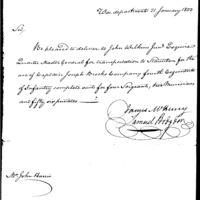 War department 21 January 1800
Sir,
Be pleased to deliver to John Wilkins Jun.r Esquire
Quarter Master General for transportation to Frederictown for the
use of Captain Joseph Brooks Company fourth Regiment
of Infantry complete suits for four Sergeants, two Musicians
and fifty six privates
James McHenry
Samuel Hodgdon
Mr John Harris